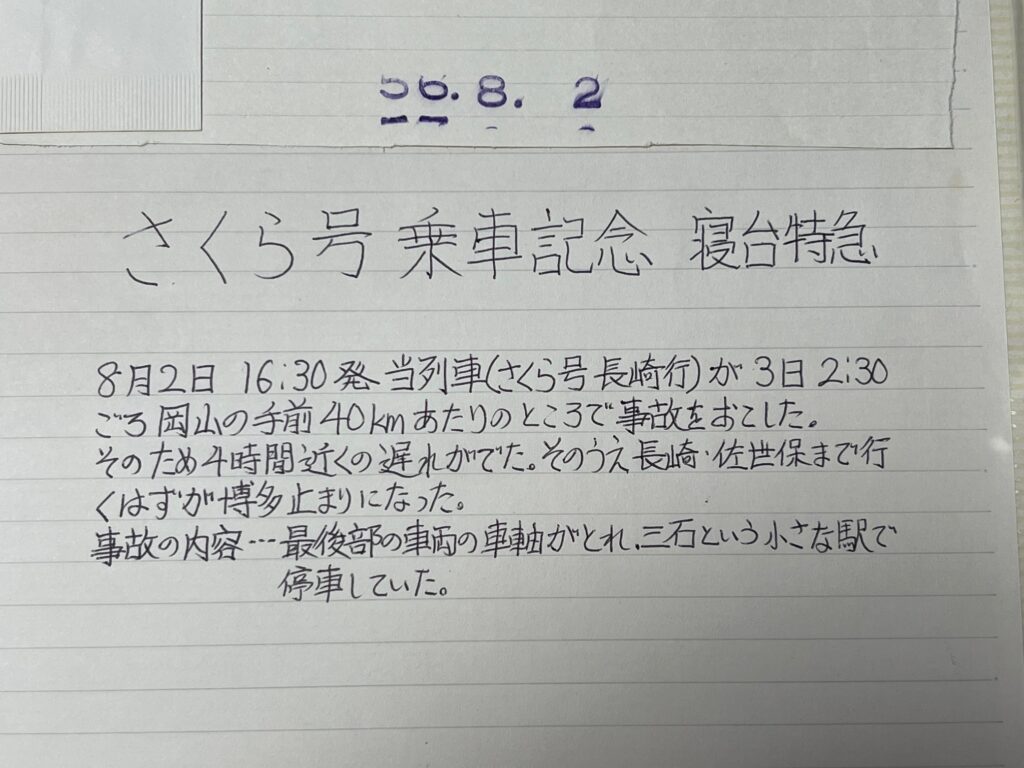 56.8.2
さくら号 乗車記念 寝台特急
8月2日 16:30発 当列車(さくら号 長崎行)が 3日 2:30
ごろ岡山の手前40kmあたりのところで事故をおこした。
そのため4時間近くの遅れがでた。そのうえ長崎・佐世保まで行
くはずが博多止まりになった。
事故の内容…最後部の車両の車軸がとれ、三石という小さな駅で
停車していた。